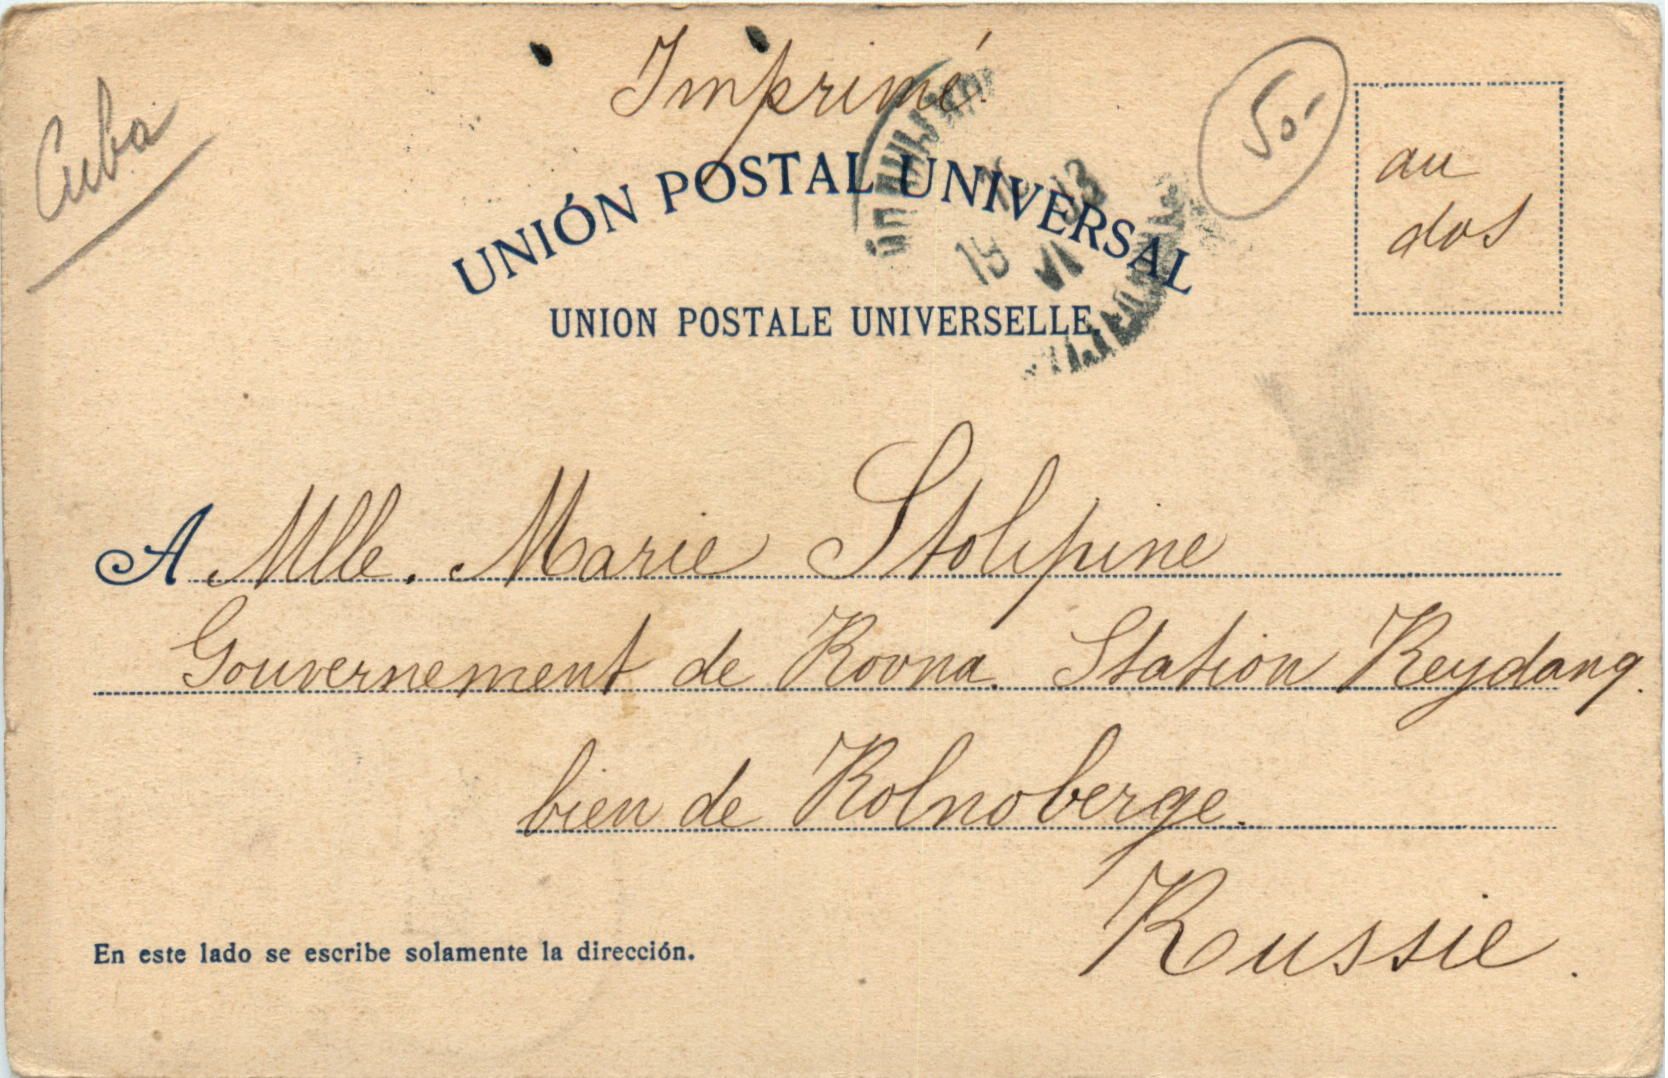 Cuba
Imprimé.
50-
au
dos
UNIÓN POSTAL UNIVERSAL
UNION POSTALE UNIVERSELLE.
A Mlle. Marie Stolipine
Gouvernement de Kovna. Station Keydany.
bien de Kolnoberge.
Russie.
En este lado se escribe solamente la dirección.